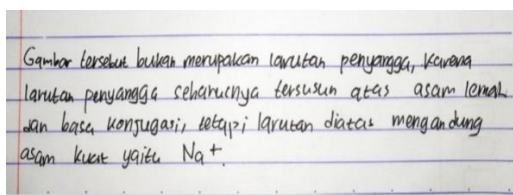 Gambar tersebut bukan merupakan larutan penyangga, karena
larutan penyangga seharusnya tersusun atas asam lemah
dan basa konjugasi, tetapi larutan diatas mengandung
asam kuat yaitu Na+.